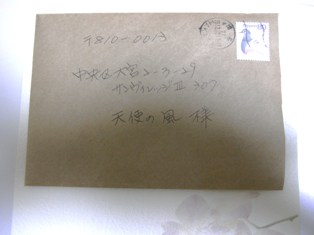 〒810-0013
中央区大宮2-3-29
サンヴィレッジⅢ 307
天使の風 様